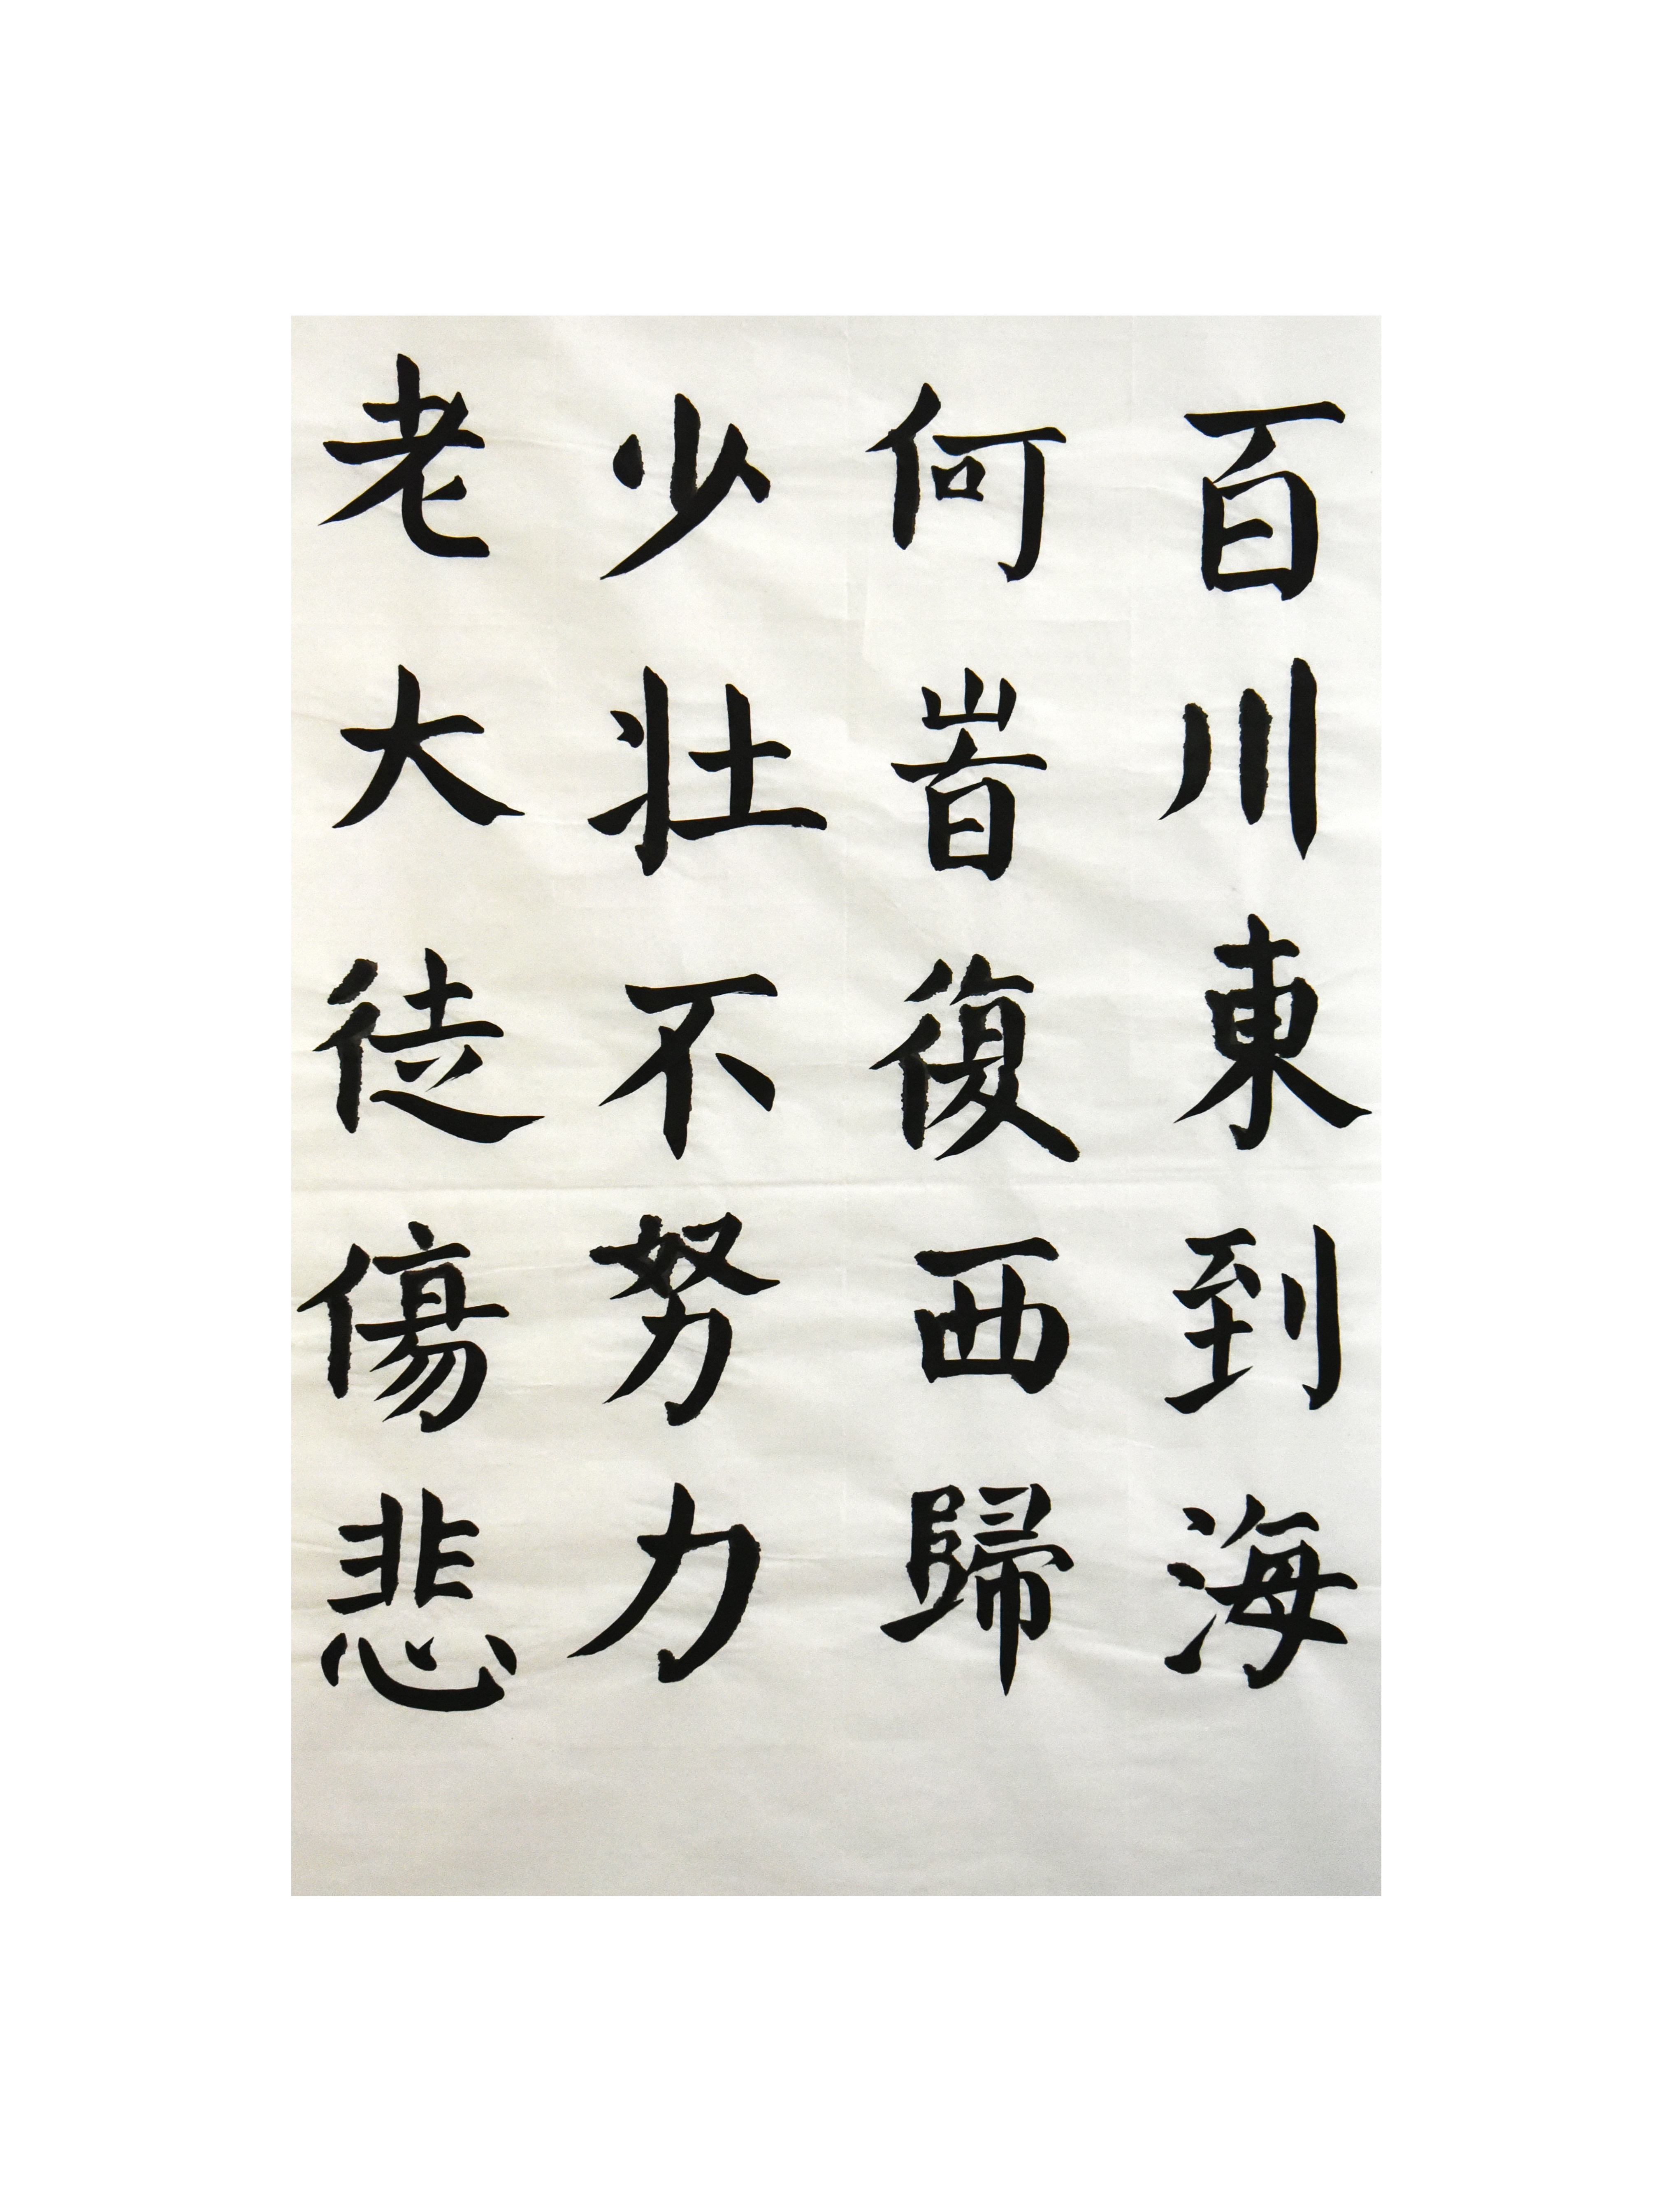 百川東到海
何旹復西歸
少壯不努力
老大徒傷悲